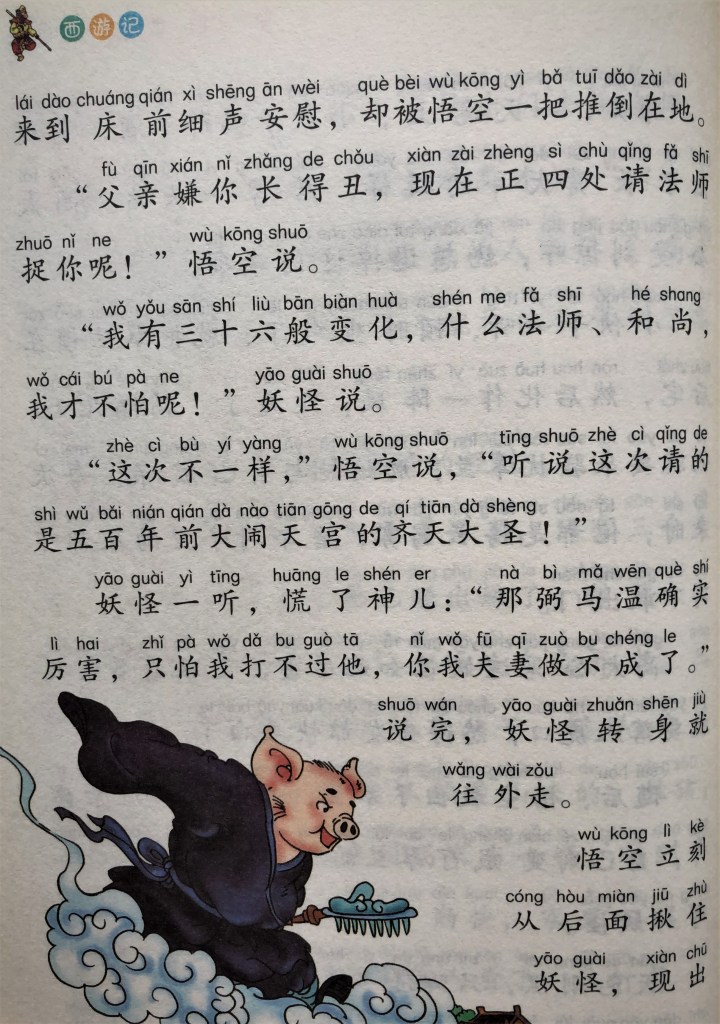 西游记
lái dào chuáng qián xì shēng ān wèi què bèi wù kōng yì bǎ tuī dǎo zài dì
来到床前细声安慰，却被悟空一把推倒在地。
fù qīn xián nǐ zhǎng de chǒu xiàn zài zhèng sì chù qǐng fǎ shī
“父亲嫌你长得丑，现在正四处请法师
zhuō nǐ ne wù kōng shuō
捉你呢！”悟空说。
wǒ yǒu sān shí liù bān biàn huà shén me fǎ shī hé shang
“我有三十六般变化，什么法师、和尚，
wǒ cái bú pà ne yāo guài shuō
我才不怕呢！”妖怪说。
zhè cì bù yí yàng wù kōng shuō tīng shuō zhè cì qǐng de
“这次不一样，”悟空说，“听说这次请的
shì wǔ bǎi nián qián dà nào tiān gōng de qí tiān dà shèng
是五百年前大闹天宫的齐天大圣！”
yāo guài yì tīng huāng le shén er nà bì mǎ wēn què shí
妖怪一听，慌了神儿：“那弼马温确实
lì hai zhǐ pà wǒ dǎ bu guò tā nǐ wǒ fū qī zuò bu chéng le
厉害，只怕我打不过他，你我夫妻做不成了。”
shuō wán yāo guài zhuǎn shēn jiù
说完，妖怪转身就
wǎng wài zǒu
往外走。
wù kōng lì kè
悟空立刻
cóng hòu miàn jiū zhù
从后面揪住
yāo guài xiàn chū
妖怪，现出